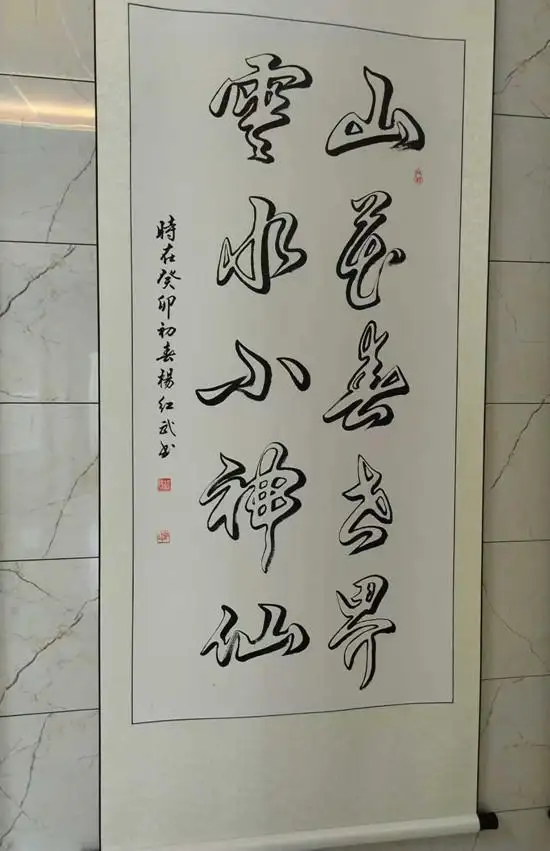 山花春世界
雲水小神仙
時在癸卯初春楊紅武书